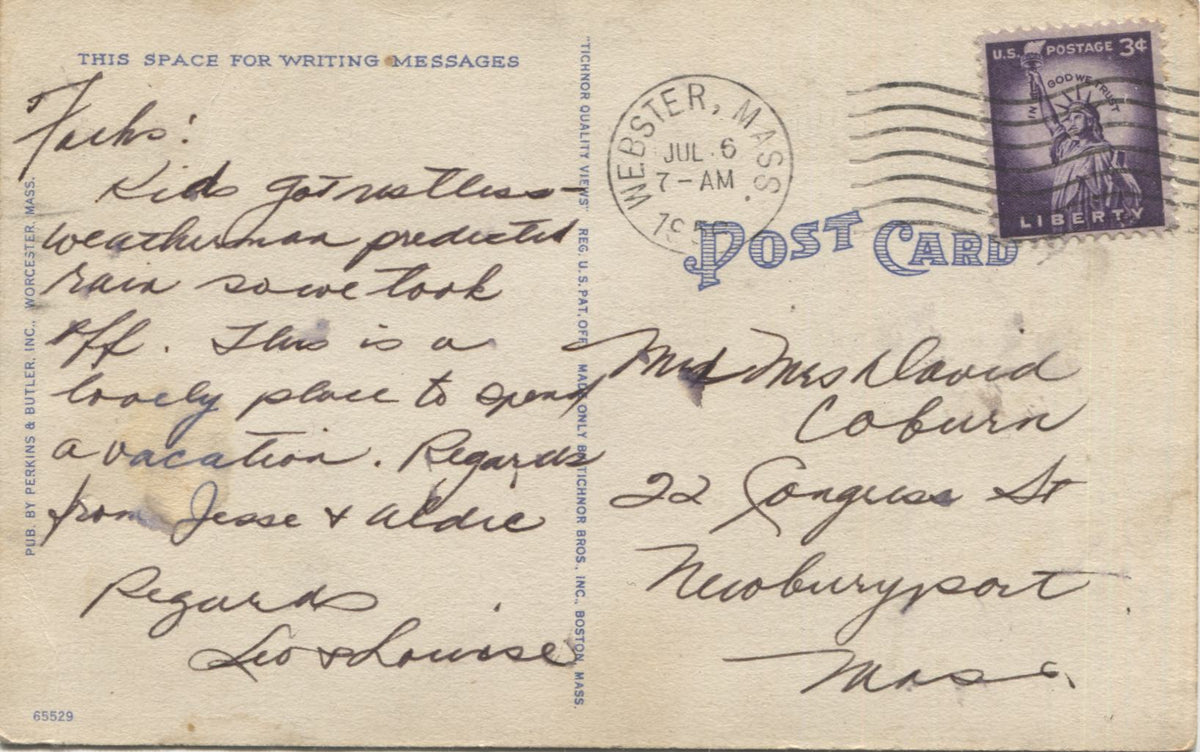 THIS SPACE FOR WRITING MESSAGES
Folks:
Kids got restless –
weatherman predicted
rain so we took
off. This is a
lovely place to spend
a vacation. Regards
from Jesse & Aldie
Regards
Leo & Louise
65529
PUB. BY PERKINS & BUTLER, INC., WORCESTER, MASS.
"TICHNOR QUALITY VIEWS" REG. U.S. PAT. OFF. MADE ONLY BY TICHNOR BROS., INC., BOSTON, MASS.
WEBSTER, MASS.
JUL 6
7 – AM
U.S. POSTAGE 3¢
IN GOD WE TRUST
LIBERTY
POST CARD
Mrs David
Coburn
22 Congress St
Newburyport
Mass.